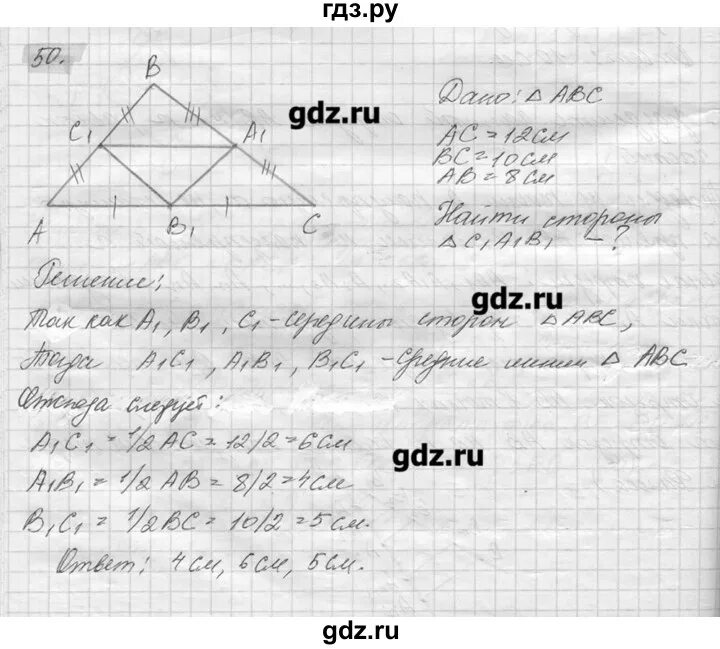 гдз.ру
50.
B
C₁
A₁
A
B₁
C
Дано: △ ABC
AC = 12 см
BC = 10 см
AB = 8 см
Найти стороны
△ C₁A₁B₁ – ?
gdz.ru
Решение:
gdz.ru
Так как A₁, B₁, C₁ - середины сторон △ ABC,
Тогда A₁C₁, A₁B₁, B₁C₁ - средние линии △ ABC
Отсюда следует:
A₁C₁ = 1/2 AC = 12/2 = 6 см
gdz.ru
A₁B₁ = 1/2 AB = 8/2 = 4 см
B₁C₁ = 1/2 BC = 10/2 = 5 см.
Ответ: 4 см, 6 см, 5 см.
gdz.ru